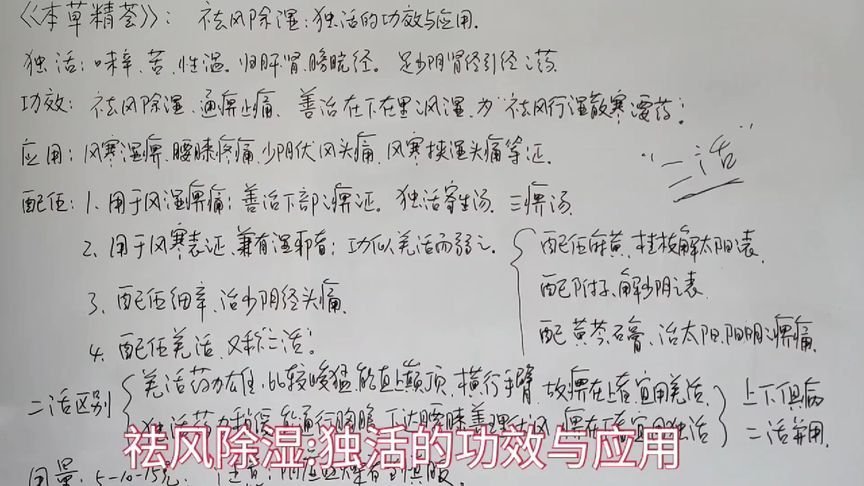 《本草精荟》：祛风除湿：独活的功效与应用.
独活：味辛、苦、性温。归肝肾膀胱经。足少阴肾经引经之药
功效：祛风除湿、通痹止痛、善治在下在里之风湿、为祛风行湿散寒要药；
应用：风寒湿痹、腰膝疼痛、少阴伏风头痛、风寒挟湿头痛等证.
"二活"
配伍：1、用于风湿痹痛：善治下部之痹证。独活寄生汤、三痹汤.
2、用于风寒表证、兼有湿邪者：功似羌活而弱之.
配伍麻黄、桂枝解太阳表.
配附子、解少阴之表.
3、配伍细辛、治少阴经头痛.
配黄芩石膏、治太阳、阳明之痹痛.
4、配伍羌活、又称二活。
二活区别
羌活药力在位、比较峻猛、能直上巅顶、横行手臂、故痹在上者宜用羌活.
独活药力稍缓、能通行胸腹、下达腰膝、善理伏风、痹在下者宜用独活
上下俱病二活并用.
用量：5-10-15克.
祛风除湿:独活的功效与应用